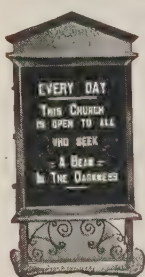 EVERY DAY
THIS CHURCH
IS OPEN TO ALL
WHO SEEK
A BEAM
IN THE DARKNESS